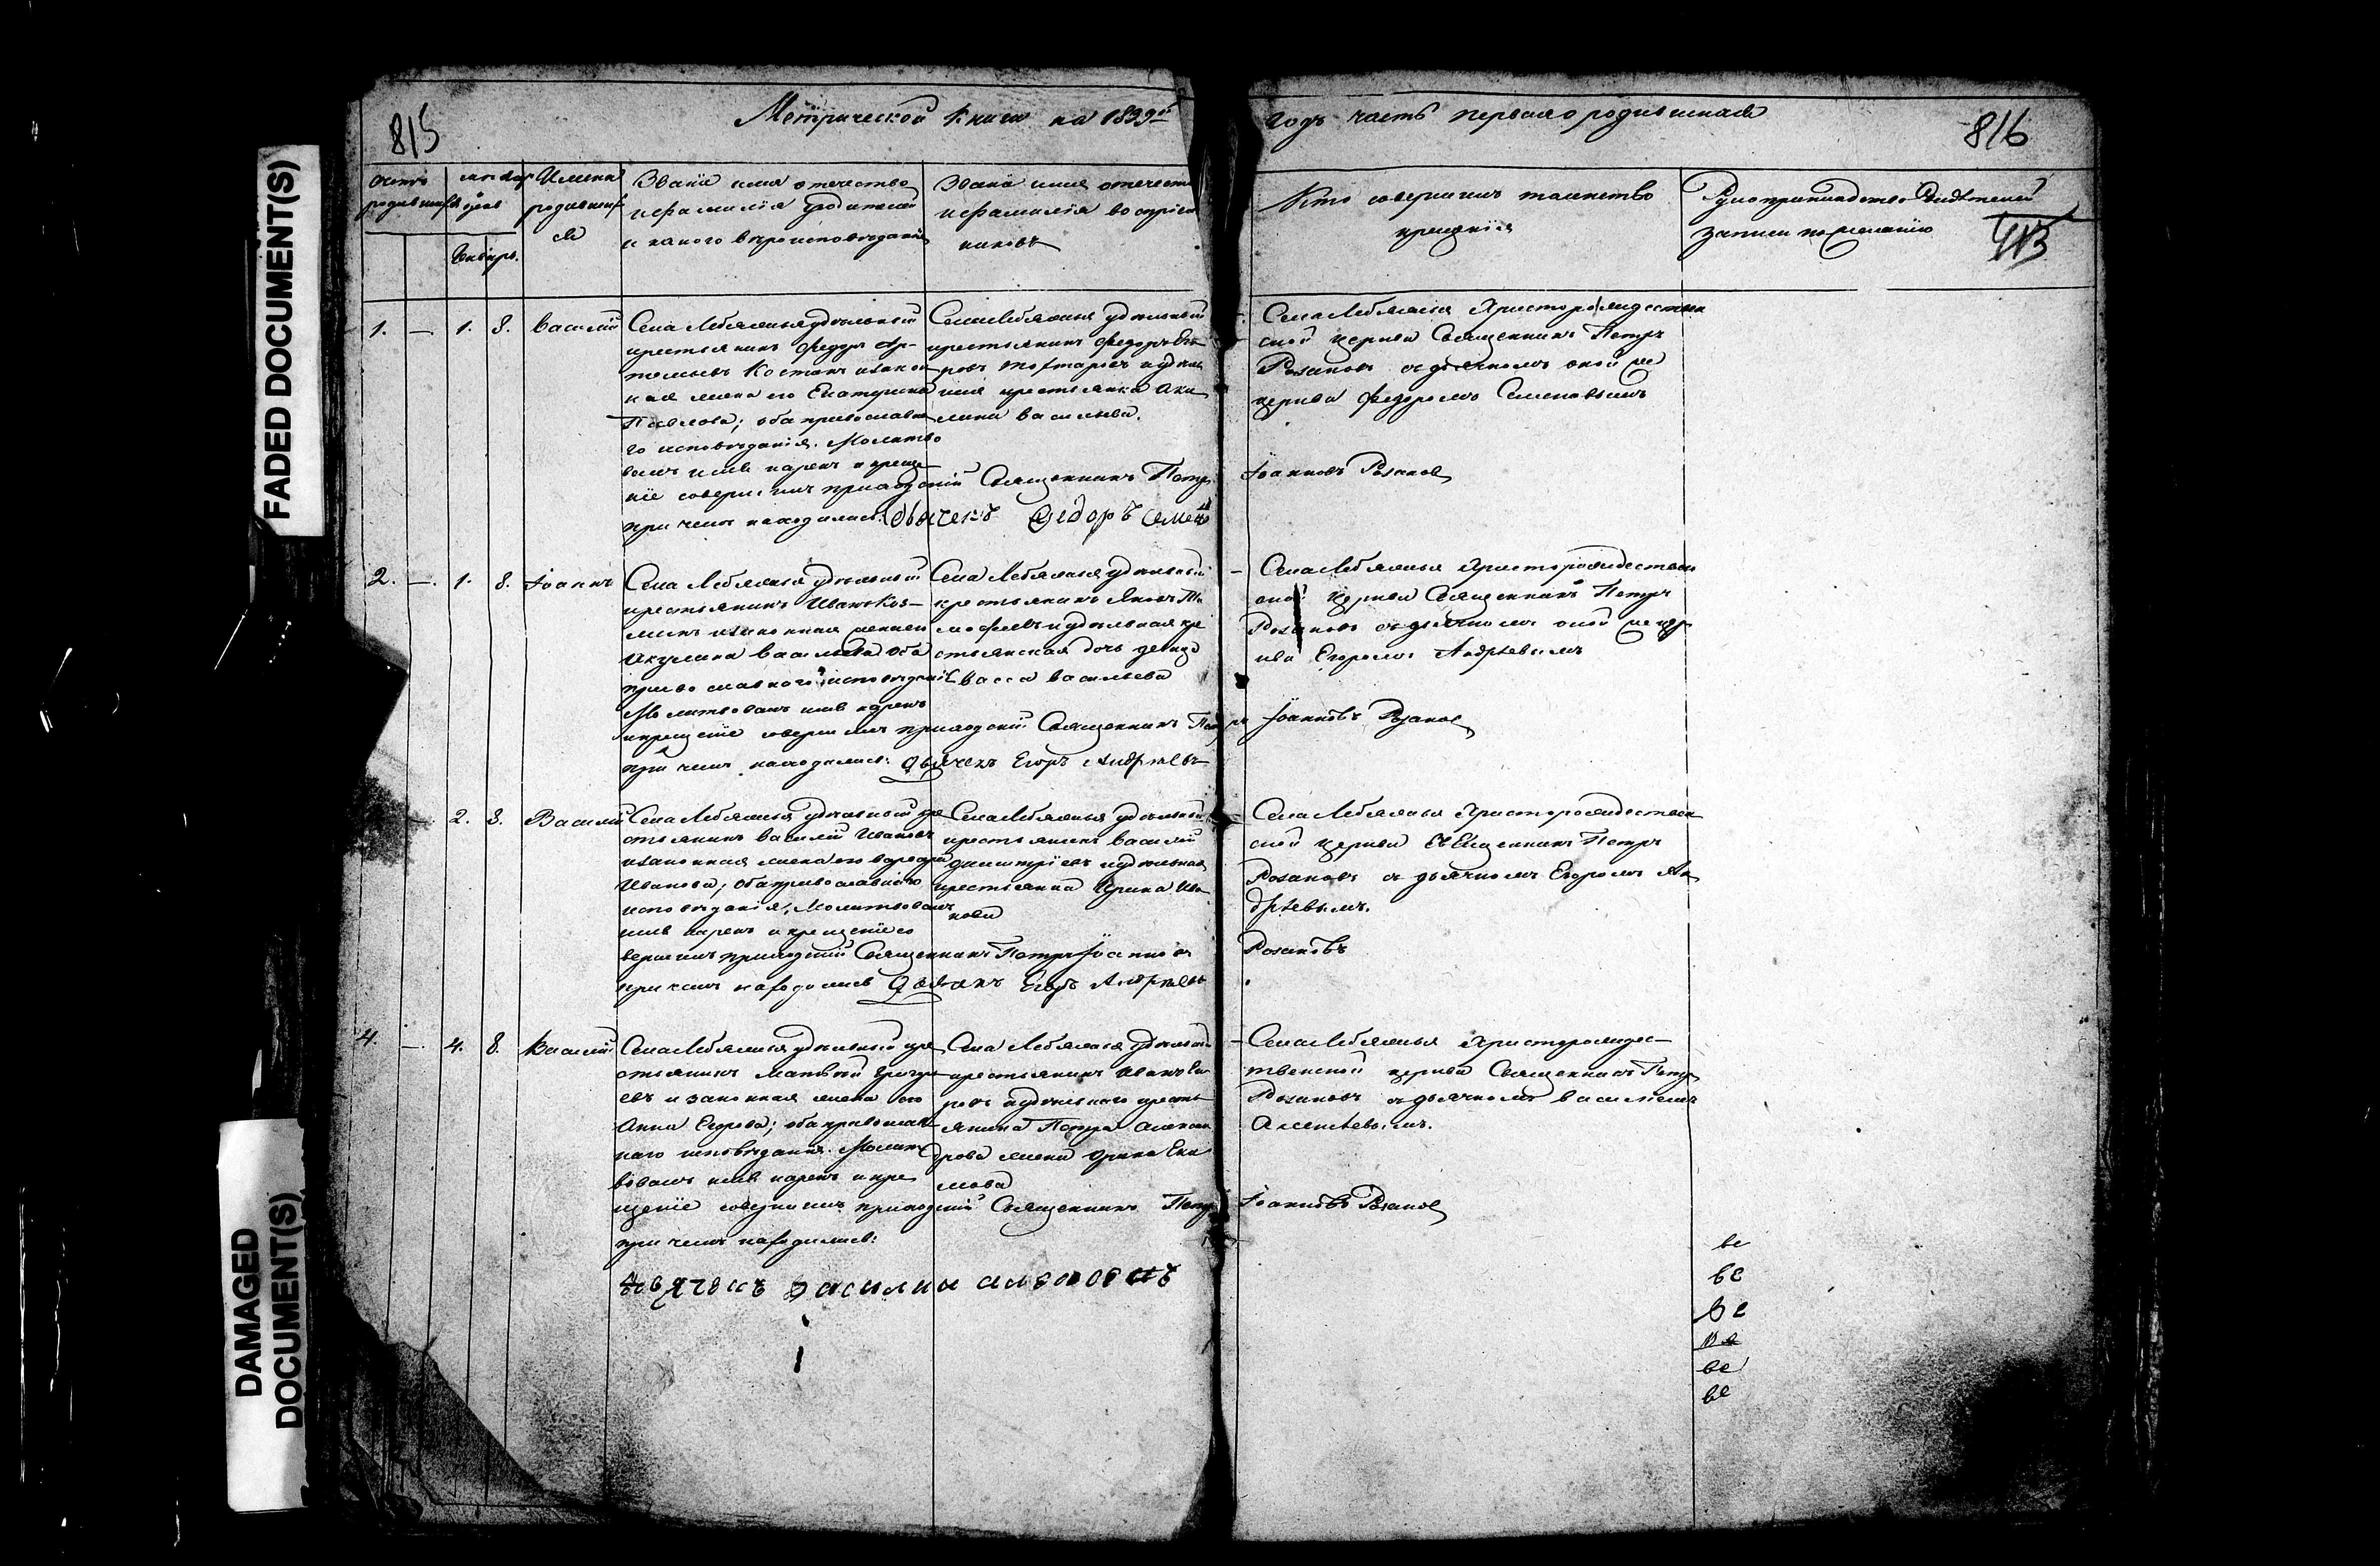 815
Метрической книги на 1839й
годъ часть первая о родившихся
816
FADED DOCUMENT(S)
родившихся
Имена
родивших
ся
Званіе имя отечество
и фамилія родителей
и какого вѣроисповѣданія
Званіе имя отечест
и фамилія воспріем
никовъ
Кто совершилъ таинство
крещенія
Рукоприкладство свидѣтелей
записи по желанію
413
Январь.
1. — 1. 8. Василій
Села Лебяжья удѣльный
крестьянинъ Федоръ Ар-
жена его Екатерина
Павлова; оба православна
го исповѣданія. Молитво
валъ имя нарекъ и креще
ніе совершилъ приходскій Священникъ Петръ
Іоанновъ Розановъ
при чемъ находились: дьячекъ Ѳедоръ Семе
Села Лебяжья удѣльный
крестьянинъ Федоръ
крестьянка Аку
лина Васильева.
Села Лебяжья Христорождествен
ской церкви Священникъ Петръ
Розановъ съ дьячкомъ оной же
церкви Федоромъ Семеновымъ
2. — 1. 8. Іоаннъ
Села Лебяжья удѣльный
крестьянинъ Иванъ Коз-
минъ и законная жена его
Акулина Васильева оба
православнаго исповѣданія
Молитвовалъ имя нарекъ
и крещеніе совершилъ приходскій Священникъ Петръ
Іоанновъ Розановъ
при чемъ находились: дьячекъ Егоръ Андреевъ
Села Лебяжья удѣльный
крестьянинъ Яковъ Ти
мофеевъ и удѣльная кре
стьянская дочь девица
Васса Васильева
Села Лебяжья Христорождествен
ской церкви Священникъ Петръ
Розановъ съ дьячкомъ оной же цер
кви Егоромъ Андрѣевымъ
2. 8. Василій
Села Лебяжья удѣльный кре
стьянинъ Василій Ивановъ
и законная жена его Варвара
Иванова; оба православнаго
исповѣданія, Молитвовалъ
имя нарекъ и крещеніе со
вершилъ приходскій Священникъ Петръ Іоанновъ
Розановъ
при чемъ находились дьячекъ Егоръ Андреевъ
Села Лебяжья удѣльный
крестьянинъ Василій
Димитріевъ и удѣльная
крестьянка Ирина Ива
нова
Села Лебяжья Христорождествен
ской церкви Священникъ Петръ
Розановъ съ дьячкомъ Егоромъ Ан
дрѣевымъ.
4. — 4. 8. Василій
Села Лебяжья удѣльный кре
стьянинъ Матвей Григорь
евъ и законная жена его
Анна Егорова; оба православ
наго исповѣданія. Молит
вовалъ имя нарекъ и кре
щеніе совершилъ приходскій Священникъ Петръ
Іоанновъ Розановъ
при чемъ находились:
дьячекъ Василии
Села Лебяжья удѣльный
крестьянинъ Иванъ
ровъ и удѣльнаго кресть
янина Петра Алексан
дрова жена Ирина Еки
мова
Села Лебяжья Христорождес-
твенской церкви Священникъ Петръ
Розановъ съ дьячкомъ Василіемъ
Алексѣевымъ.
ве
ве
ве
ве
ве
DAMAGED
DOCUMENT(S)